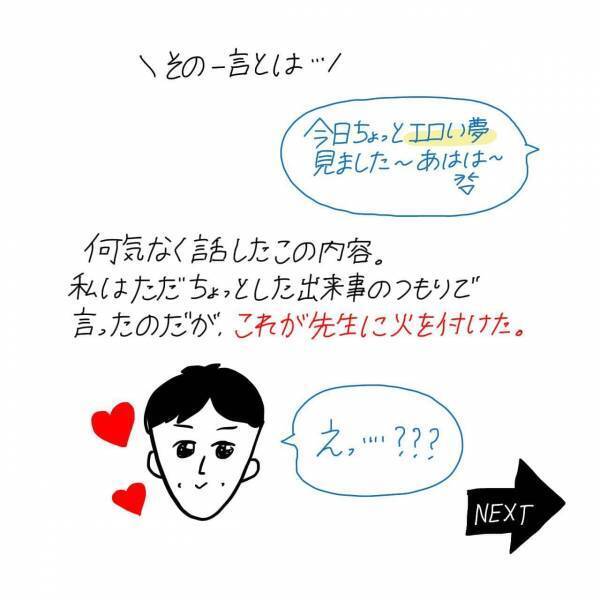 \その一言とは…/
今日ちょっとエロい夢
見ました〜あはは〜
何気なく話したこの内容。
私はただちょっとした出来事のつもりで
言ったのだが、これが先生に火を付けた。
えっ…???
NEXT